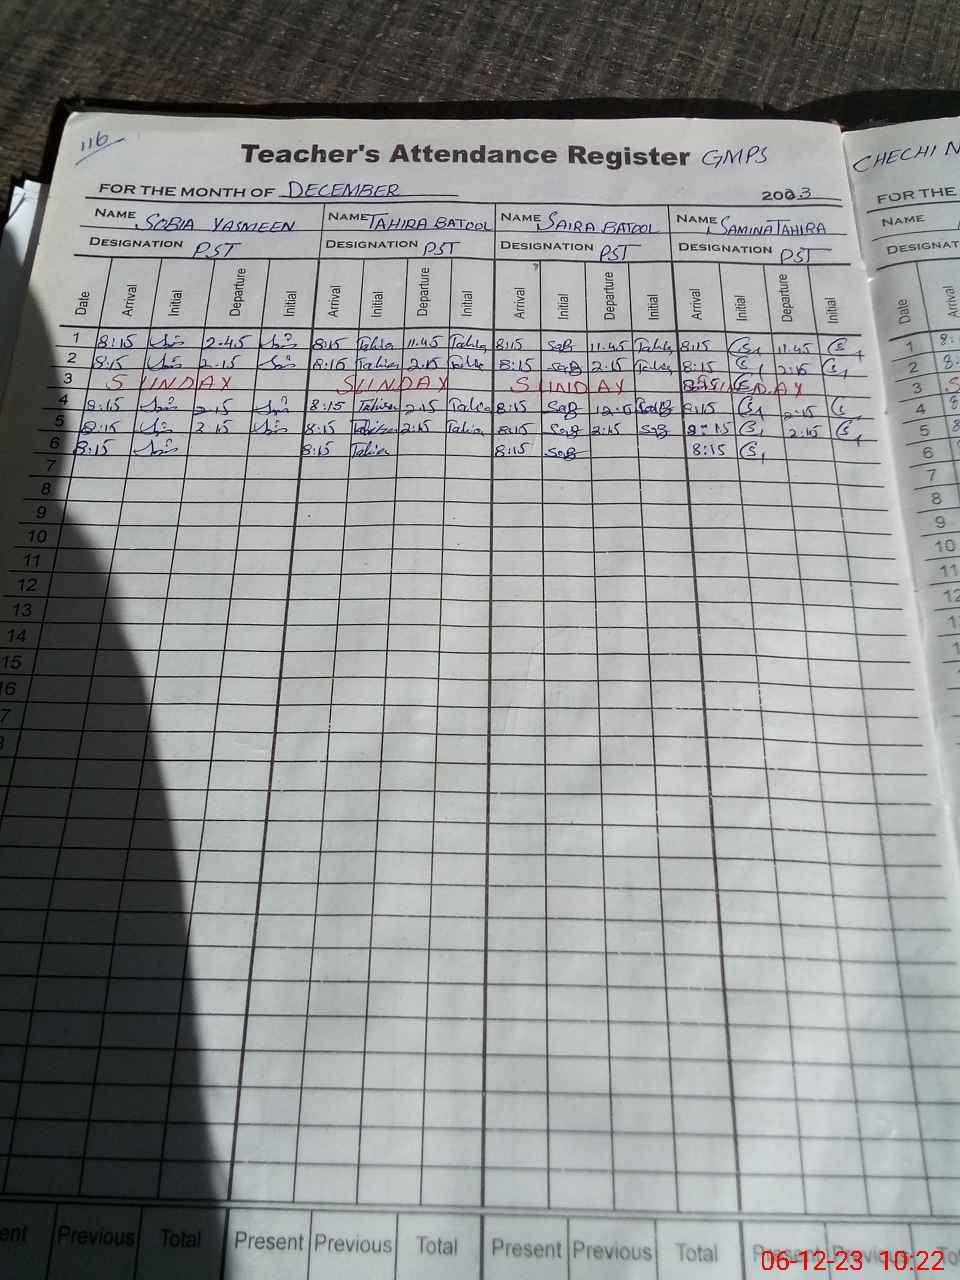 116
Teacher's Attendance Register GMPS
CHECHI
FOR THE MONTH OF DECEMBER 2023
FOR THE
NAME SOBIA YASMEEN NAME TAHIRA BATOOL NAME SAIRA BATOOL NAME SAMINA TAHIRA
NAME
DESIGNATION PST DESIGNATION PST DESIGNATION PST DESIGNATION PST
DESIGNAT
Date Arrival Initial Departure Initial Arrival Initial Departure Initial Arrival Initial Departure Initial Arrival Initial Departure Initial Date Arrival
1 8:15 2.45 8:15 Tahira 11.45 Tahira 8:15 SaB 11.45 8:15 11:45 1 8:
2 8:15 2.15 8:15 Tahira 2:15 8:15 SaB 2:15 8:15 2:15 2 8
3 SUNDAY SUNDAY SUNDAY SUNDAY 3 S
4 8:15 2.15 8:15 Tahira 2:15 8:15 SaB SaB 8:15 2:15 4 8
5 8:15 2:15 8:15 Tahira 2:15 Tahira 8:15 SaB 2:15 SaB 8:15 2:15 5 8
6 8:15 8:15 Tahira 8:15 SaB 8:15 6
7 7
8 8
9 9
10 10
11 11
12 12
13
14
15
16
7
8
ent Previous Total Present Previous Total Present Previous Total Present Previous To
06-12-23 10:22